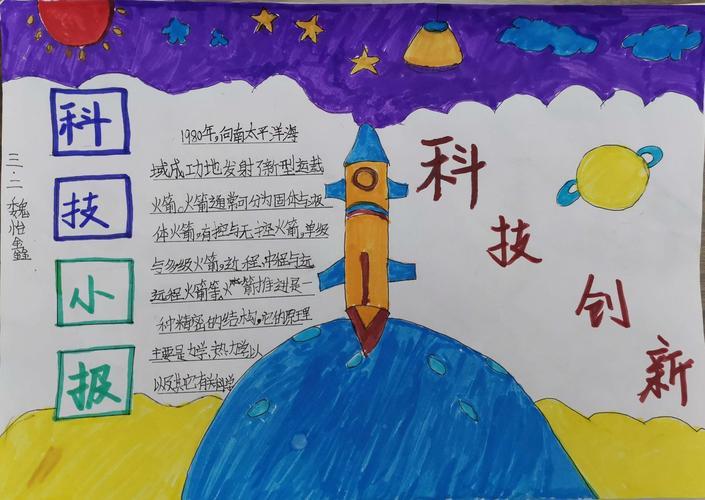 科
技
小
报
三.二
魏
1980年,向南太平洋海
域成功地发射了新型运载
火箭。火箭通常可分为固体与液
体火箭,有控与无控火箭,单级
与多级火箭,近程、中程与远
远程火箭等,火箭推进是一
种精密的结构,它的原理
主要是力学、热力学以
以及其它有关科学
科
技
创
新